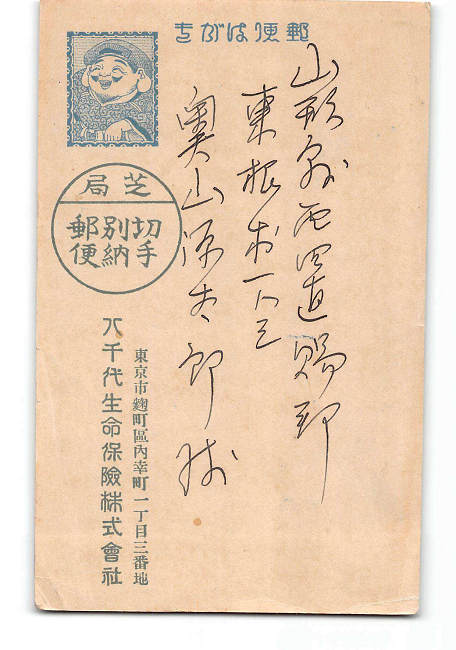 郵便はがき
山形縣西置賜郡
東根村
奥山源太郎殿
芝局
切手
別納
郵便
東京市麹町區內幸町一丁目三番地
八千代生命保險株式會社